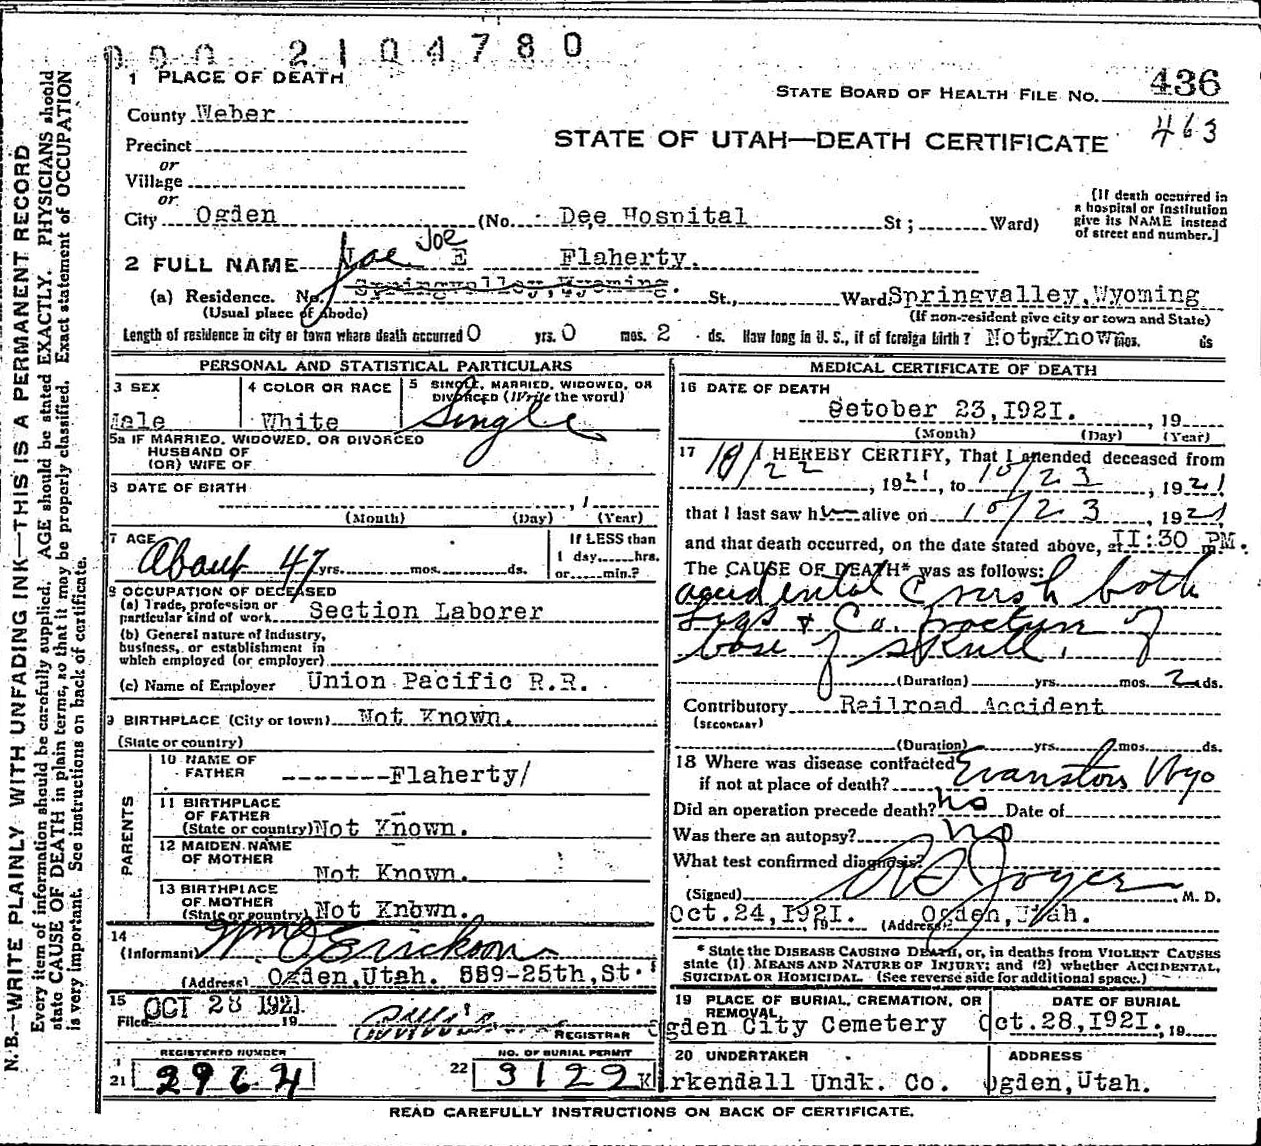 000 2104780
1 PLACE OF DEATH
STATE BOARD OF HEALTH FILE NO. 436
County Weber
463
STATE OF UTAH—DEATH CERTIFICATE
Precinct
or
Village
or
City Ogden (No. Dee Hospital St; Ward)
[If death occurred in
a hospital or institution
give its NAME instead
of street and number.]
Joe
2 FULL NAME Joe E Flaherty.
(a) Residence. No. Springvalley, Wyoming. St., Ward Springvalley, Wyoming
(Usual place of abode) (If non-resident give city or town and State)
Length of residence in city or town where death occurred 0 yrs. 0 mos. 2 ds. How long in U. S., if of foreign birth? Not yrs. Known mos. ds
PERSONAL AND STATISTICAL PARTICULARS
3 SEX
Male
4 COLOR OR RACE
White
5 SINGLE, MARRIED, WIDOWED, OR
DIVORCED (Write the word)
Single
5a IF MARRIED, WIDOWED, OR DIVORCED
HUSBAND OF
(OR) WIFE OF
6 DATE OF BIRTH
, 1
(Month) (Day) (Year)
7 AGE
About 47 yrs. mos. ds.
If LESS than
1 day hrs.
or min.?
8 OCCUPATION OF DECEASED
(a) Trade, profession or
particular kind of work Section Laborer
(b) General nature of industry,
business, or establishment in
which employed (or employer)
(c) Name of Employer Union Pacific R.R.
9 BIRTHPLACE (City or town) Not Known.
(State or country)
PARENTS
10 NAME OF
FATHER --------Flaherty/
11 BIRTHPLACE
OF FATHER
(State or country) Not Known.
12 MAIDEN NAME
OF MOTHER
Not Known.
13 BIRTHPLACE
OF MOTHER
(State or country) Not Known.
14
(Informant) Wm O Erickson
(Address) Ogden, Utah. 559-25th, St.
15
Filed OCT 28 1921 19
REGISTRAR
REGISTERED NUMBER
21 2964
NO. OF BURIAL PERMIT
22 3129
MEDICAL CERTIFICATE OF DEATH
16 DATE OF DEATH
October 23, 1921. , 19
(Month) (Day) (Year)
17 I HEREBY CERTIFY, That I attended deceased from
10/22 , 1921, to 10/23 , 1921
that I last saw him alive on 10/23 , 1921
and that death occurred, on the date stated above, at 11:30 PM.
The CAUSE OF DEATH* was as follows:
accidental Crush both
Legs & Co. fracture of
base of skull.
(Duration) yrs. mos. 2 ds.
Contributory Railroad Accident
(SECONDARY)
(Duration) yrs. mos. ds.
18 Where was disease contracted
if not at place of death? Evanston Wyo
Did an operation precede death? no Date of
Was there an autopsy? no
What test confirmed diagnosis?
(Signed) Joyce , M. D.
Oct. 24, 1921. , 19 (Address) Ogden, Utah.
* State the DISEASE CAUSING DEATH, or, in deaths from VIOLENT CAUSES
state (1) MEANS AND NATURE OF INJURY; and (2) whether ACCIDENTAL,
SUICIDAL OR HOMICIDAL. (See reverse side for additional space.)
19 PLACE OF BURIAL, CREMATION, OR
REMOVAL
Ogden City Cemetery
DATE OF BURIAL
Oct. 28, 1921. , 19
20 UNDERTAKER
Kirkendall Undk. Co.
ADDRESS
Ogden, Utah.
READ CAREFULLY INSTRUCTIONS ON BACK OF CERTIFICATE.
N.B.—WRITE PLAINLY WITH UNFADING INK—THIS IS A PERMANENT RECORD
Every item of information should be carefully supplied. AGE should be stated EXACTLY. PHYSICIANS should
state CAUSE OF DEATH in plain terms, so that it may be properly classified. Exact statement of OCCUPATION
is very important. See instructions on back of certificate.